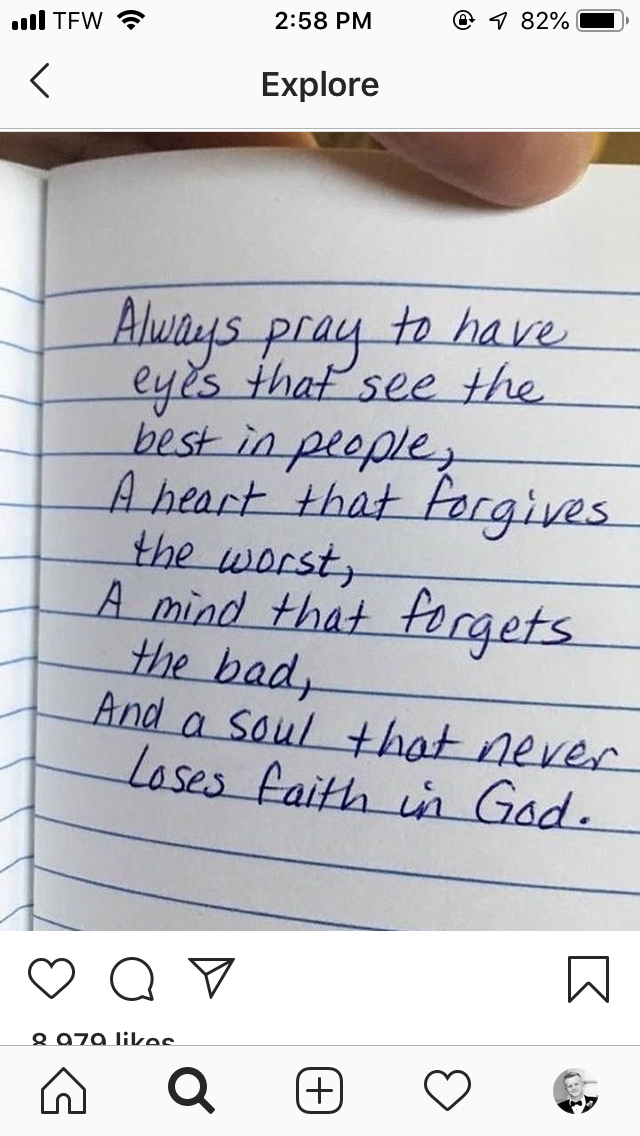 TFW 2:58 PM 82%
Explore
Always pray to have
eyes that see the
best in people,
A heart that forgives
the worst,
A mind that forgets
the bad,
And a soul that never
loses faith in God.
8,979 likes